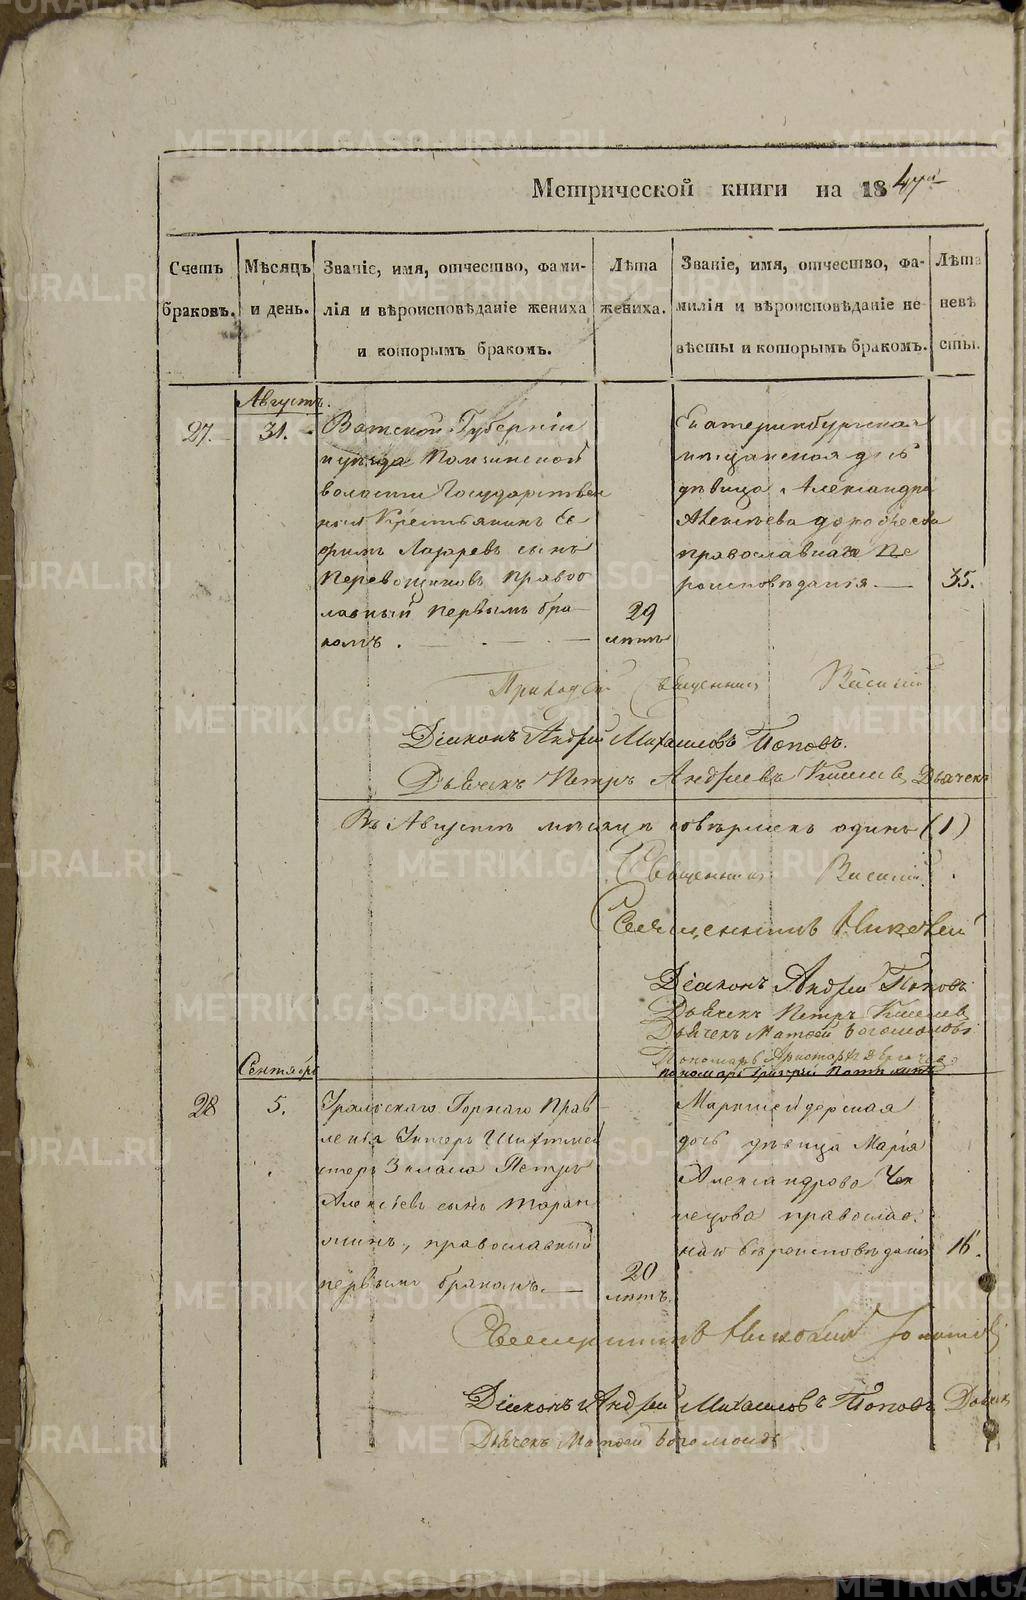 Метрической книги на 1847й
Счетъ браковъ.
Мѣсяцъ и день.
Званіе, имя, отчество, фами-
лія и вѣроисповѣданіе жениха
и которымъ бракомъ.
Лѣта
жениха.
Званіе, имя, отчество, фа-
милія и вѣроисповѣданіе не-
вѣсты и которымъ бракомъ.
Лѣта
невѣ
сты.
Августъ.
27.
31.
Вятской Губерніи
волости Государствен
ный Крестьянинъ Е
фимъ Лазаревъ сынъ
Перевощиковъ правос
лавный первымъ бра
комъ.
29
лѣтъ
Екатеринбургская
мѣщанская дочь
дѣвица Александра
Алексѣева
православнаго вѣ
роисповѣданія.
35.
Приходскій Священникъ Василій
Діаконъ Андрей Михаиловъ Поповъ.
Дьячекъ Петръ Андреевъ Дьячекъ
Въ Августѣ мѣсяцѣ совершенъ одинъ (1)
Священникъ Василій
Священникъ Николай
Діаконъ Андрей Поповъ
Дьячекъ Петръ
Дьячекъ Матвей Богомоловъ
Пономарь Аристархъ
Пономарь Григорій
Сентябрь
28
5.
Уральскаго Горнаго Прав
ленія Унтеръ Шихтмей
стеръ 3 класа Петръ
Алексѣевъ сынъ Таран
, православный
первымъ бракомъ.
20
лѣтъ.
Маркшейдерская
дочь дѣвица Марія
Александрова Че
православ
наго вѣроисповѣданія
16.
Священникъ Николай
Діаконъ Андрей Михаиловъ Поповъ Дьячек
Дьячекъ Матвей Богомоловъ
METRIKI.GASO-URAL.RU